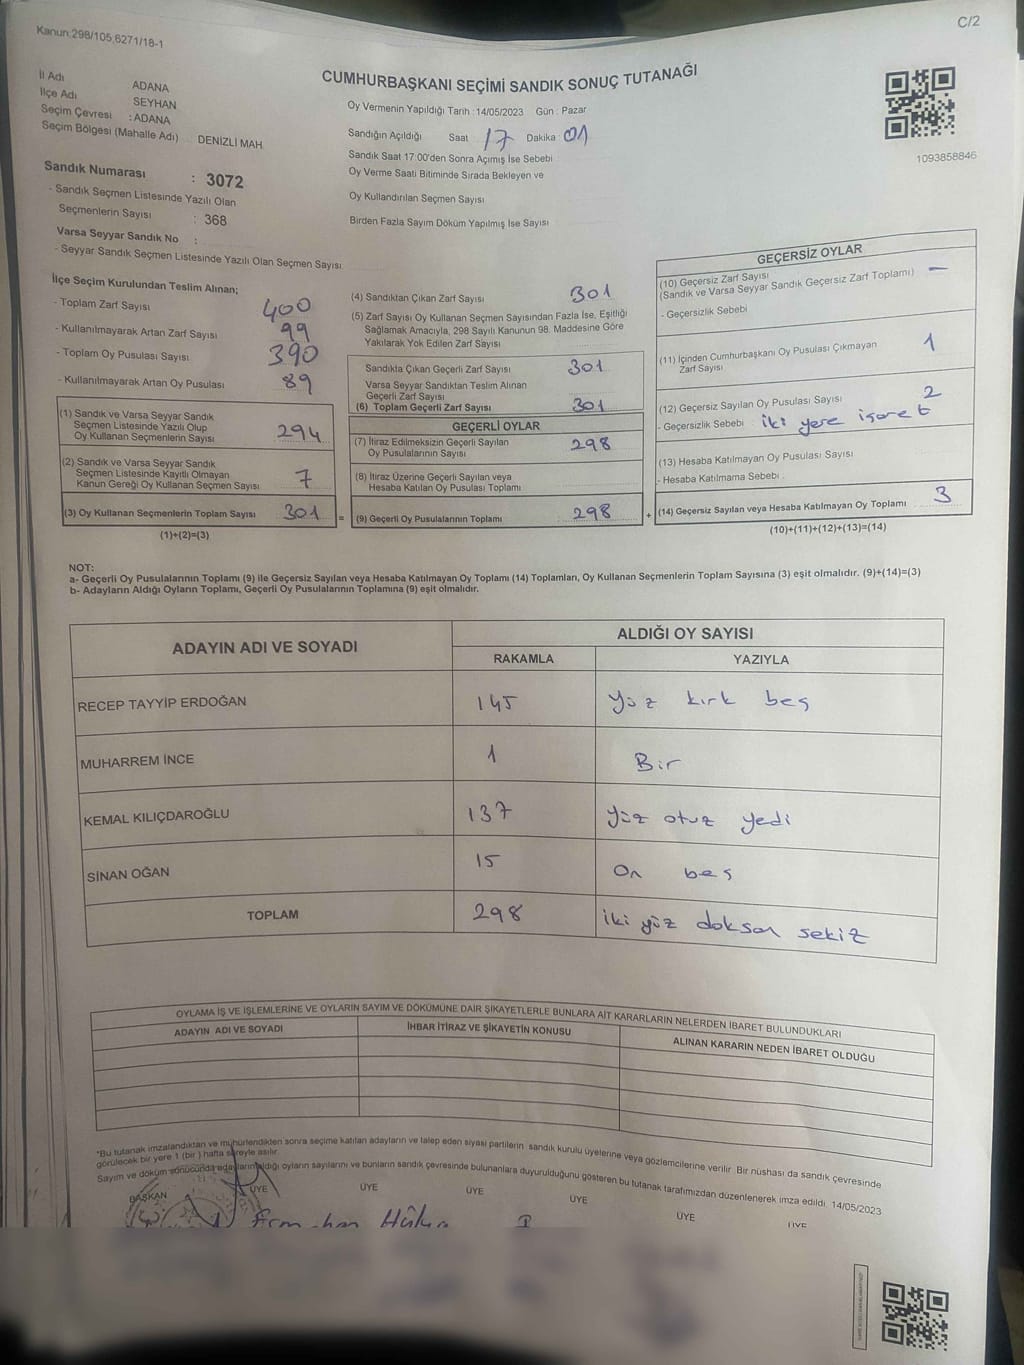 Kanun 298/105,6271/18-1
C/2
CUMHURBAŞKANI SEÇİMİ SANDIK SONUÇ TUTANAĞI
İl Adı ADANA
İlçe Adı SEYHAN
Seçim Çevresi : ADANA
Seçim Bölgesi (Mahalle Adı) DENİZLİ MAH.
Oy Vermenin Yapıldığı Tarih : 14/05/2023 Gün : Pazar
Sandığın Açıldığı Saat 17 Dakika : 01
Sandık Saat 17:00'den Sonra Açımış İse Sebebi
Oy Verme Saati Bitiminde Sırada Bekleyen ve
Oy Kullandırılan Seçmen Sayısı
Birden Fazla Sayım Döküm Yapılmış İse Sayısı
1093858846
Sandık Numarası : 3072
- Sandık Seçmen Listesinde Yazılı Olan
Seçmenlerin Sayısı : 368
Varsa Seyyar Sandık No :
- Seyyar Sandık Seçmen Listesinde Yazılı Olan Seçmen Sayısı
İlçe Seçim Kurulundan Teslim Alınan;
- Toplam Zarf Sayısı 400
- Kullanılmayarak Artan Zarf Sayısı 99
- Toplam Oy Pusulası Sayısı 390
- Kullanılmayarak Artan Oy Pusulası 89
(1) Sandık ve Varsa Seyyar Sandık
Seçmen Listesinde Yazılı Olup
Oy Kullanan Seçmenlerin Sayısı 294
(2) Sandık ve Varsa Seyyar Sandık
Seçmen Listesinde Kayıtlı Olmayan
Kanun Gereği Oy Kullanan Seçmen Sayısı 7
(3) Oy Kullanan Seçmenlerin Toplam Sayısı 301 =
(1)+(2)=(3)
(4) Sandıktan Çıkan Zarf Sayısı 301
(5) Zarf Sayısı Oy Kullanan Seçmen Sayısından Fazla İse, Eşitliği
Sağlamak Amacıyla, 298 Sayılı Kanunun 98. Maddesine Göre
Yakılarak Yok Edilen Zarf Sayısı
Sandıkta Çıkan Geçerli Zarf Sayısı 301
Varsa Seyyar Sandıktan Teslim Alınan
Geçerli Zarf Sayısı
(6) Toplam Geçerli Zarf Sayısı 301
GEÇERLİ OYLAR
(7) İtiraz Edilmeksizin Geçerli Sayılan
Oy Pusulalarının Sayısı 298
(8) İtiraz Üzerine Geçerli Sayılan veya
Hesaba Katılan Oy Pusulası Toplamı
(9) Geçerli Oy Pusulalarının Toplamı 298 +
GEÇERSİZ OYLAR
(10) Geçersiz Zarf Sayısı
(Sandık ve Varsa Seyyar Sandık Geçersiz Zarf Toplamı) —
- Geçersizlik Sebebi
(11) İçinden Cumhurbaşkanı Oy Pusulası Çıkmayan
Zarf Sayısı 1
(12) Geçersiz Sayılan Oy Pusulası Sayısı 2
- Geçersizlik Sebebi iki yere işaret
(13) Hesaba Katılmayan Oy Pusulası Sayısı
- Hesaba Katılmama Sebebi :
(14) Geçersiz Sayılan veya Hesaba Katılmayan Oy Toplamı 3
(10)+(11)+(12)+(13)=(14)
NOT:
a- Geçerli Oy Pusulalarının Toplamı (9) ile Geçersiz Sayılan veya Hesaba Katılmayan Oy Toplamı (14) Toplamları, Oy Kullanan Seçmenlerin Toplam Sayısına (3) eşit olmalıdır. (9)+(14)=(3)
b- Adayların Aldığı Oyların Toplamı, Geçerli Oy Pusulalarının Toplamına (9) eşit olmalıdır.
ADAYIN ADI VE SOYADI
ALDIĞI OY SAYISI
RAKAMLA YAZIYLA
RECEP TAYYİP ERDOĞAN 145 yüz kırk beş
MUHARREM İNCE 1 Bir
KEMAL KILIÇDAROĞLU 137 yüz otuz yedi
SİNAN OĞAN 15 On beş
TOPLAM 298 iki yüz doksan sekiz
OYLAMA İŞ VE İŞLEMLERİNE VE OYLARIN SAYIM VE DÖKÜMÜNE DAİR ŞİKAYETLERLE BUNLARA AİT KARARLARIN NELERDEN İBARET BULUNDUKLARI
ADAYIN ADI VE SOYADI İHBAR İTİRAZ VE ŞİKAYETİN KONUSU ALINAN KARARIN NEDEN İBARET OLDUĞU
*Bu tutanak imzalandıktan ve mühürlendikten sonra seçime katılan adayların ve talep eden siyasi partilerin sandık kurulu üyelerine veya gözlemcilerine verilir. Bir nüshası da sandık çevresinde
görülecek bir yere 1 (bir) hafta süreyle asılır.
Sayım ve döküm sonucunda adayların aldığı oyların sayılarını ve bunların sandık çevresinde bulunanlara duyurulduğunu gösteren bu tutanak tarafımızdan düzenlenerek imza edildi. 14/05/2023
BAŞKAN ÜYE ÜYE ÜYE ÜYE ÜYE ÜYE